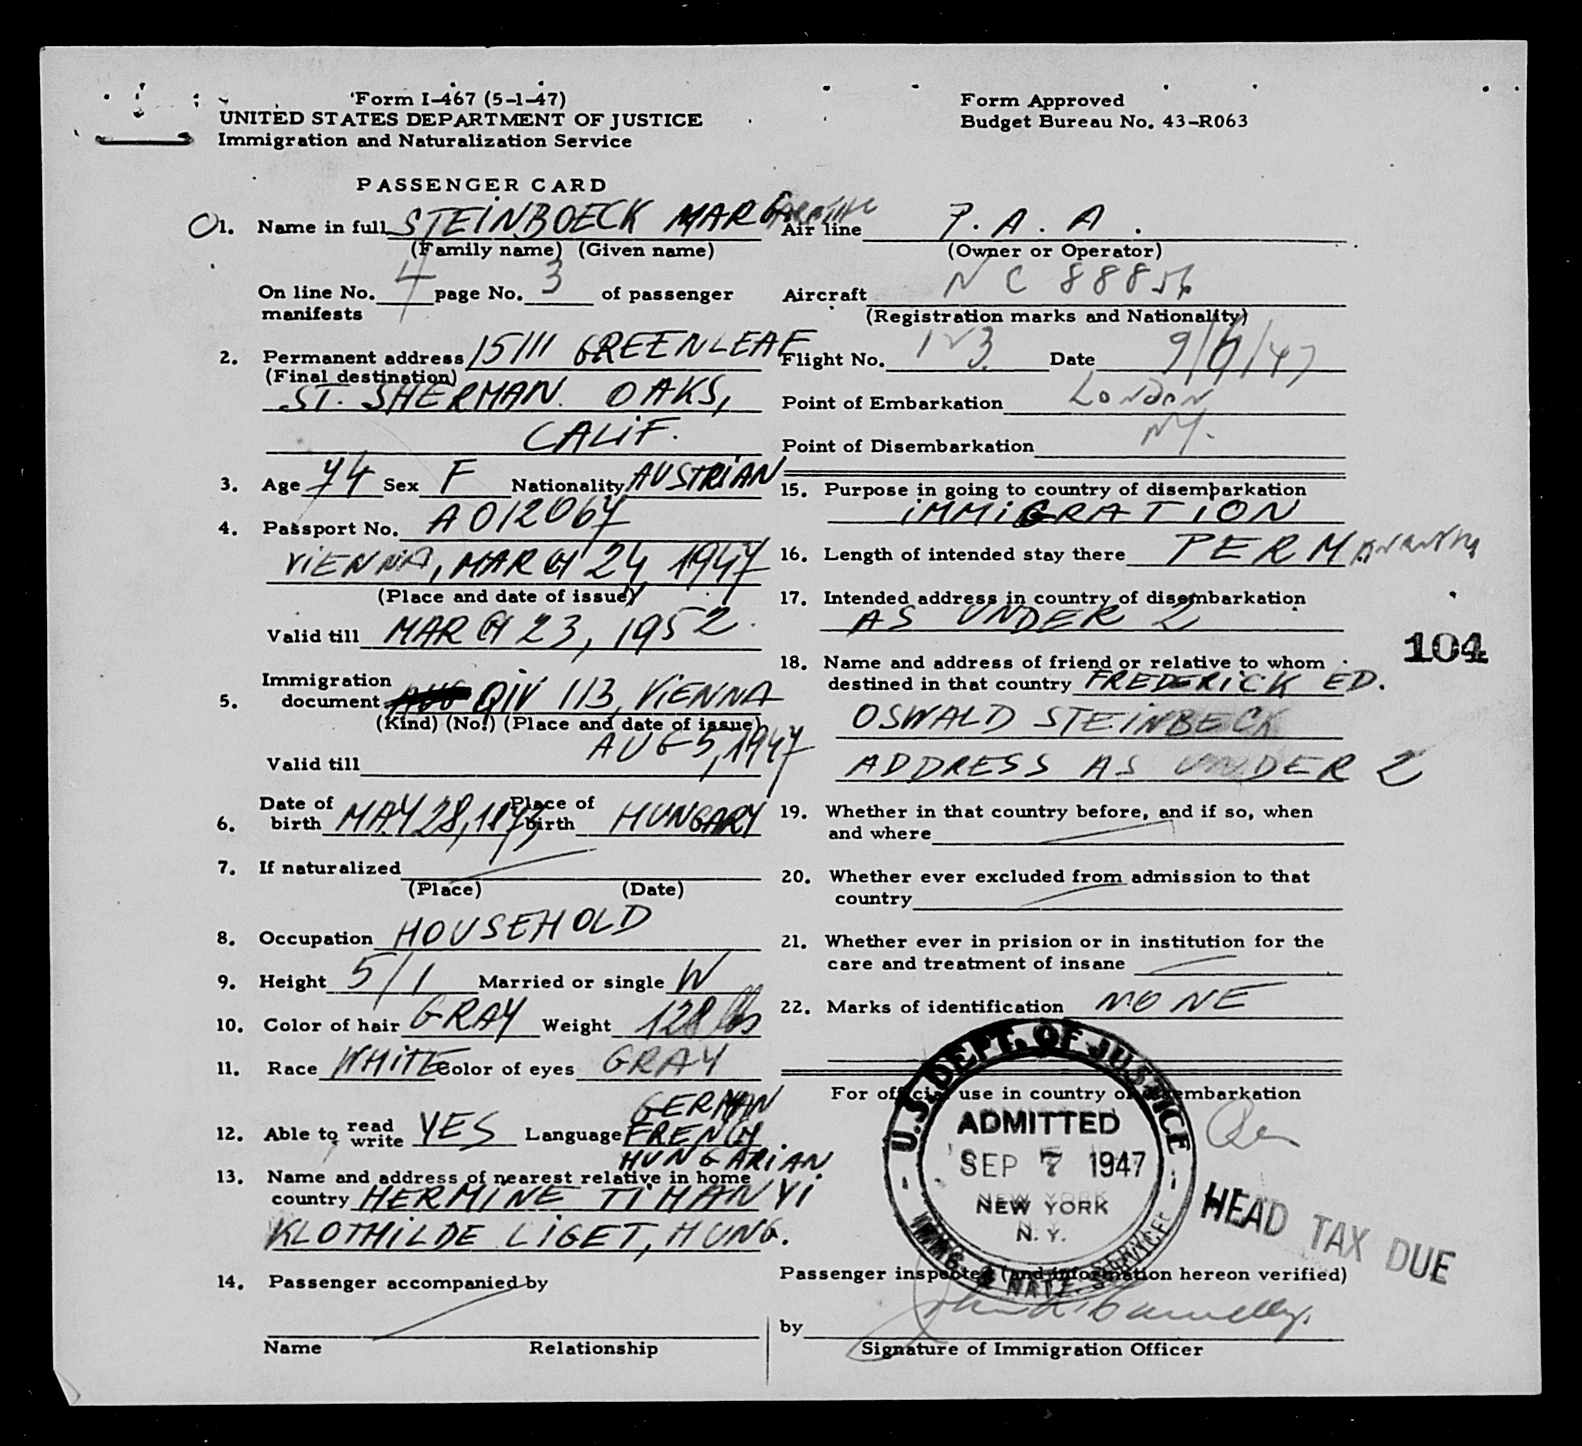 Form I-467 (5-1-47)
UNITED STATES DEPARTMENT OF JUSTICE
Immigration and Naturalization Service
Form Approved
Budget Bureau No. 43-R063
PASSENGER CARD
1. Name in full STEINBOECK MARGARETHE
(Family name) (Given name)
On line No. 4 page No. 3 of passenger
manifests
2. Permanent address 15111 GREENLEAF
(Final destination)
ST. SHERMAN OAKS,
CALIF.
3. Age 74 Sex F Nationality AUSTRIAN
4. Passport No. A012067
VIENNA, MARCH 24, 1947
(Place and date of issue)
Valid till MARCH 23, 1952.
5. Immigration
document QIV 113, VIENNA
(Kind) (No.) (Place and date of issue)
AUG 5, 1947
Valid till
6. Date of birth MAY 28, 1873 Place of birth HUNGARY
7. If naturalized
(Place) (Date)
8. Occupation HOUSEHOLD
9. Height 5/1 Married or single W
10. Color of hair GRAY Weight 128 lbs
11. Race WHITE Color of eyes GRAY
12. Able to read write YES Language GERMAN
FRENCH
HUNGARIAN
13. Name and address of nearest relative in home
country HERMINE TIHANYI
KLOTHILDE LIGET, HUNG.
14. Passenger accompanied by
Name Relationship
Air line P. A. A.
(Owner or Operator)
Aircraft NC 88856
(Registration marks and Nationality)
Flight No. 1 3 Date 9/ /47
Point of Embarkation LONDON
Point of Disembarkation NY.
15. Purpose in going to country of disembarkation
IMMIGRATION
16. Length of intended stay there PERMANENTLY
17. Intended address in country of disembarkation
AS UNDER 2
104
18. Name and address of friend or relative to whom
destined in that country FREDERICK ED.
OSWALD STEINBECK
ADDRESS AS UNDER 2
19. Whether in that country before, and if so, when
and where
20. Whether ever excluded from admission to that
country
21. Whether ever in prision or in institution for the
care and treatment of insane
22. Marks of identification NONE
For official use in country of disembarkation
U.S. DEPT. OF JUSTICE
ADMITTED
SEP 7 1947
NEW YORK
N. Y.
IMMG. & NATZ. SERVICE
HEAD TAX DUE
Passenger inspected (and information hereon verified)
by
Signature of Immigration Officer